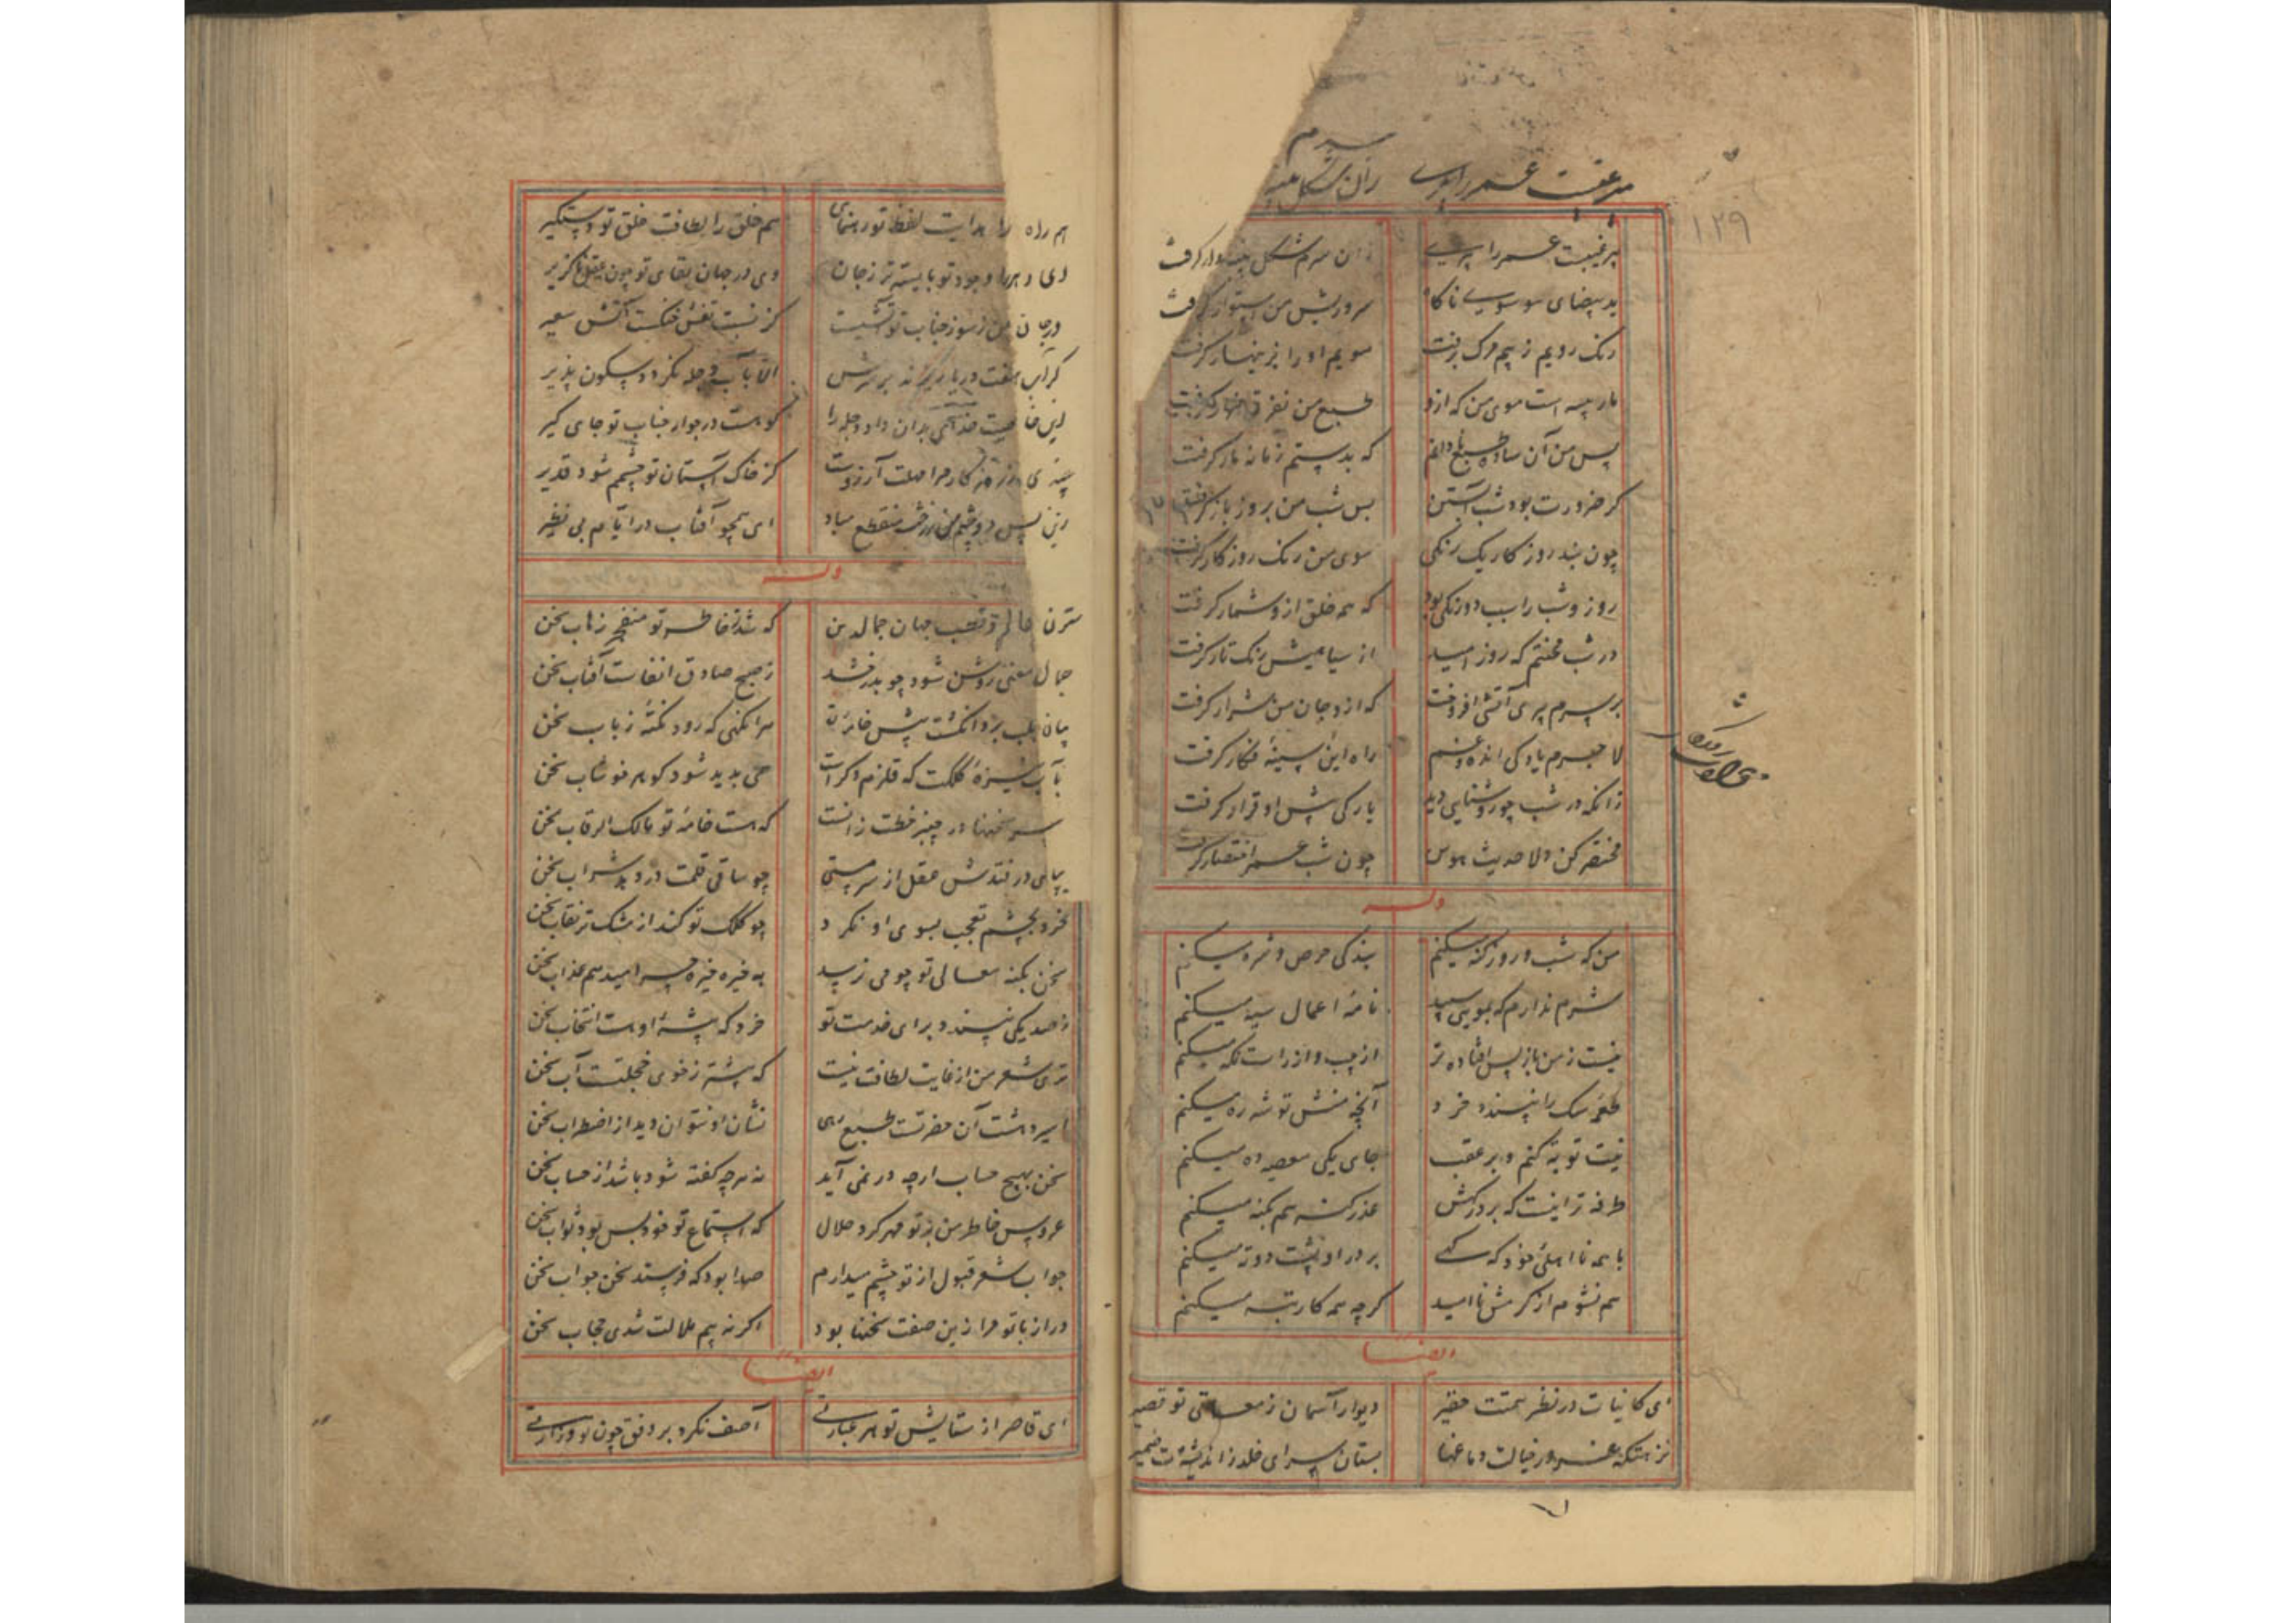 ۱۲۹
پیر غیبت عمر را پری
زان سرم شکل پنبه وار کرفت
ید بیضای موسوی ناکاه
سر و ریش من استوار کرفت
رنک رویم ز بیم مرک برفت
مویم او را بزینهار کرفت
مار پیسه است موی من که ازو
طبع من نفرت
پس من آن ساده طبع نادانم
که بدستم زمانه مار کرفت
کر ضرورت بود شب آبستن
بس شب من بروز بار کرفت
چون بند روز کار یک رنکی
موی من رنک روزکار کرفت
روز و شب را سبب دو رنکی بود
که همه خلق ازو شمار کرفت
در شب محنتم که روز امید
از سیاهیش رنک تار کرفت
بر سرم پیری آتشی افروخت
که ازو جان من شرار کرفت
لا جرم یاد کی انده و غم
راه این سینهٔ فکار کرفت
زانکه در شب چو روشنایی دید
یارکی پیش او قرار کرفت
مختصر کن دلا حدیث هوس
چون شب عمر اختصار کرفت
وله
من که شب و روز کنه میکنم
بندکی حرص و شره میکنم
شرم ندارم که بمویی سپید
نامهٔ اعمال سیه میکنم
نیست ز من باز پس افتاده تر
از چپ و از راست نکه میکنم
طعمهٔ سک را نپسندد خرد
آنچه منش توشه ره میکنم
نیت توبه کنم و بر عقب
جای یکی معصیه ده میکنم
طرفه تر اینست که بر درکهش
عذر کنه هم بکنه میکنم
با همه نا اهلی خود که کهی
بر در او پشت دوته میکنم
هم نشوم از کرمش ناامید
کرچه همه کار تبه میکنم
ایضا
ای کاینات در نظر همتت حقیر
دیوار آسمان ز معالی تو قصیر
نزهتکه خرد در خیالت دماغها
بستان سرای خلد ز اندیشه‌ات ضمیر
هم راه را هدایت لفظ تو رهنمای
هم خلق را لطافت خلق تو دستکیر
ای دهر را وجود تو بایسته تر ز جان
وی در جهان بقای تو چون عقل ناکزیر
در جان من ز سوز جناب تو آتشیست
کز نسبت تفش خنکست آتش سعیر
کر آب هفت دریا ریزند بر سرش
الا بآب دجله نکردد سکون پذیر
این خاصیت خدای بدان داد دجله را
کو هست در جوار جناب تو جای کیر
کز خاک آستان تو چشمم شود قریر
زین پس دو چشم من ز رخت منقطع مباد
ای همچو آفتاب در ایام بی نظیر
وله
که شد خاطر تو منفجر زهاب سخن
جمال معنی روشن شود چو بدرخشد
ز صبح صادق انفاست آفتاب سخن
بیان بلب برد انکشت پیش خامهٔ تو
هر آنکهی که رود نکته ز باب سخن
بآب تیزهٔ کلکت که قلزم دکر است
همی بدید شود کوهر خوشاب سخن
سر سخنها در چنبر خطت زانست
که هست خامهٔ تو مالک الرقاب سخن
بپای در فتدش عقل از سر مستی
چو ساقی قلمت در دهد شراب سخن
خرد بچشم تعجب بسوی او نکرد
چو کلک تو کند از مشک تر نقاب سخن
سخن بکنه معالی تو چو می نرسد
به خیره خیره چرا میدهم عذاب سخن
ز صد یکی نپسندد برای خدمت تو
خرد که پیشهٔ او هست انتخاب سخن
تری شعر من از غایت لطافت نیست
که بیشتر ز خوی خجلتست آب سخن
اسیر دهشت آن حضرتست طبع رهی
نشان او بتوان دید از اضطراب سخن
سخن بهیچ حساب ارچه در نمی آید
نه هرچه کفته شود باشد از حساب سخن
عروس خاطر من بر تو مهر کرد حلال
که استماع تو خود بس بود ثواب سخن
جواب شعر قبول از تو چشم میدارم
صدا بود که فرستد سخن جواب سخن
دراز با تو مرا زین صفت سخنها بود
اکر نه بیم ملالت شدی حجاب سخن
ایضا
ای قاصر از ستایش تو هر عبارتی
آصف نکرد بر وفق چون تو وزارتی